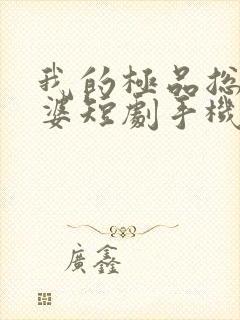 我的極品總
婆短劇手機
廣鑫